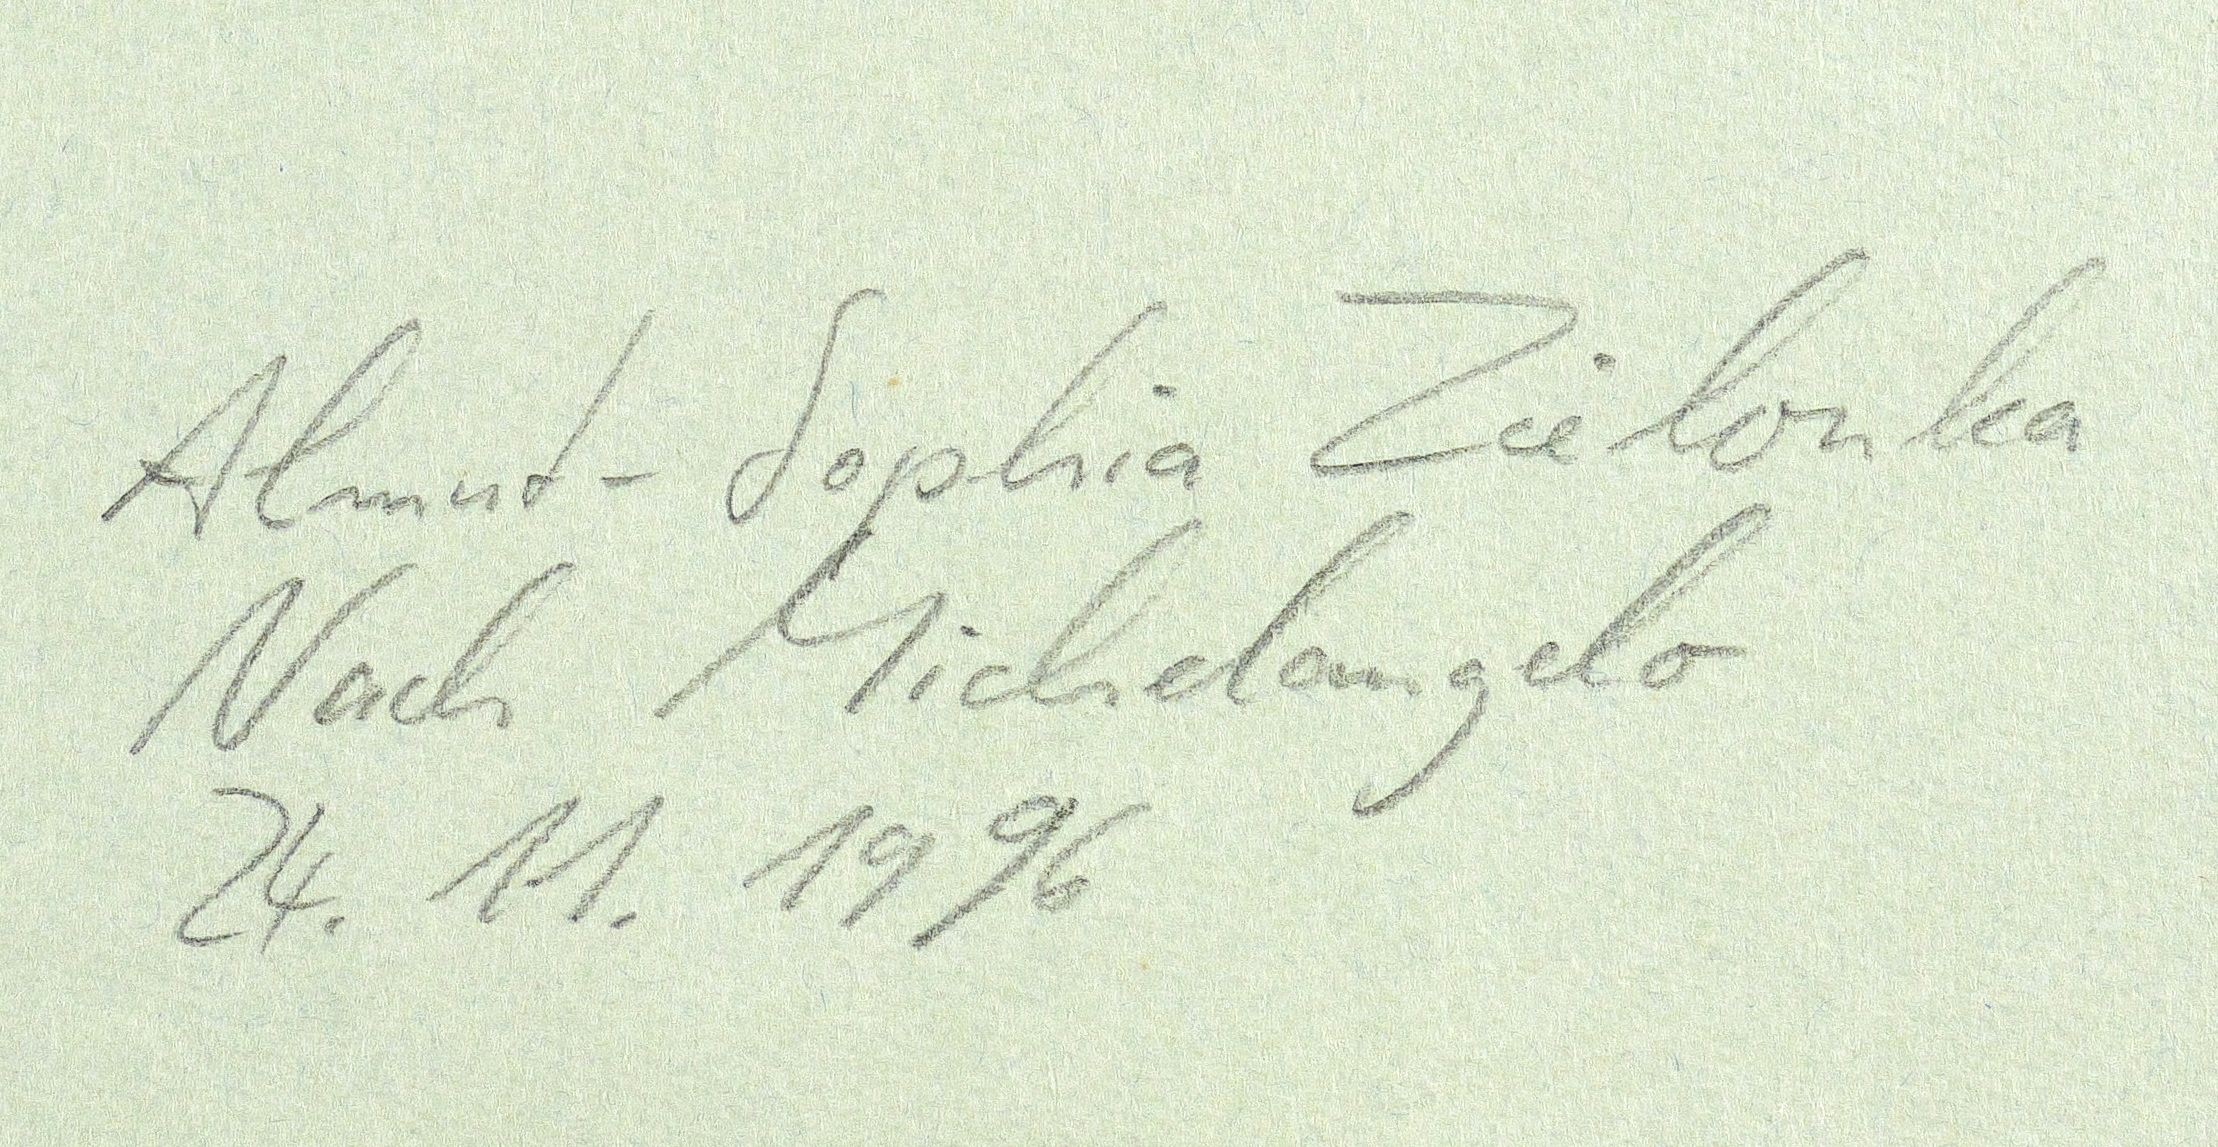 Almut-Sophia Zielonka
Nach Michelangelo
24. 11. 1996